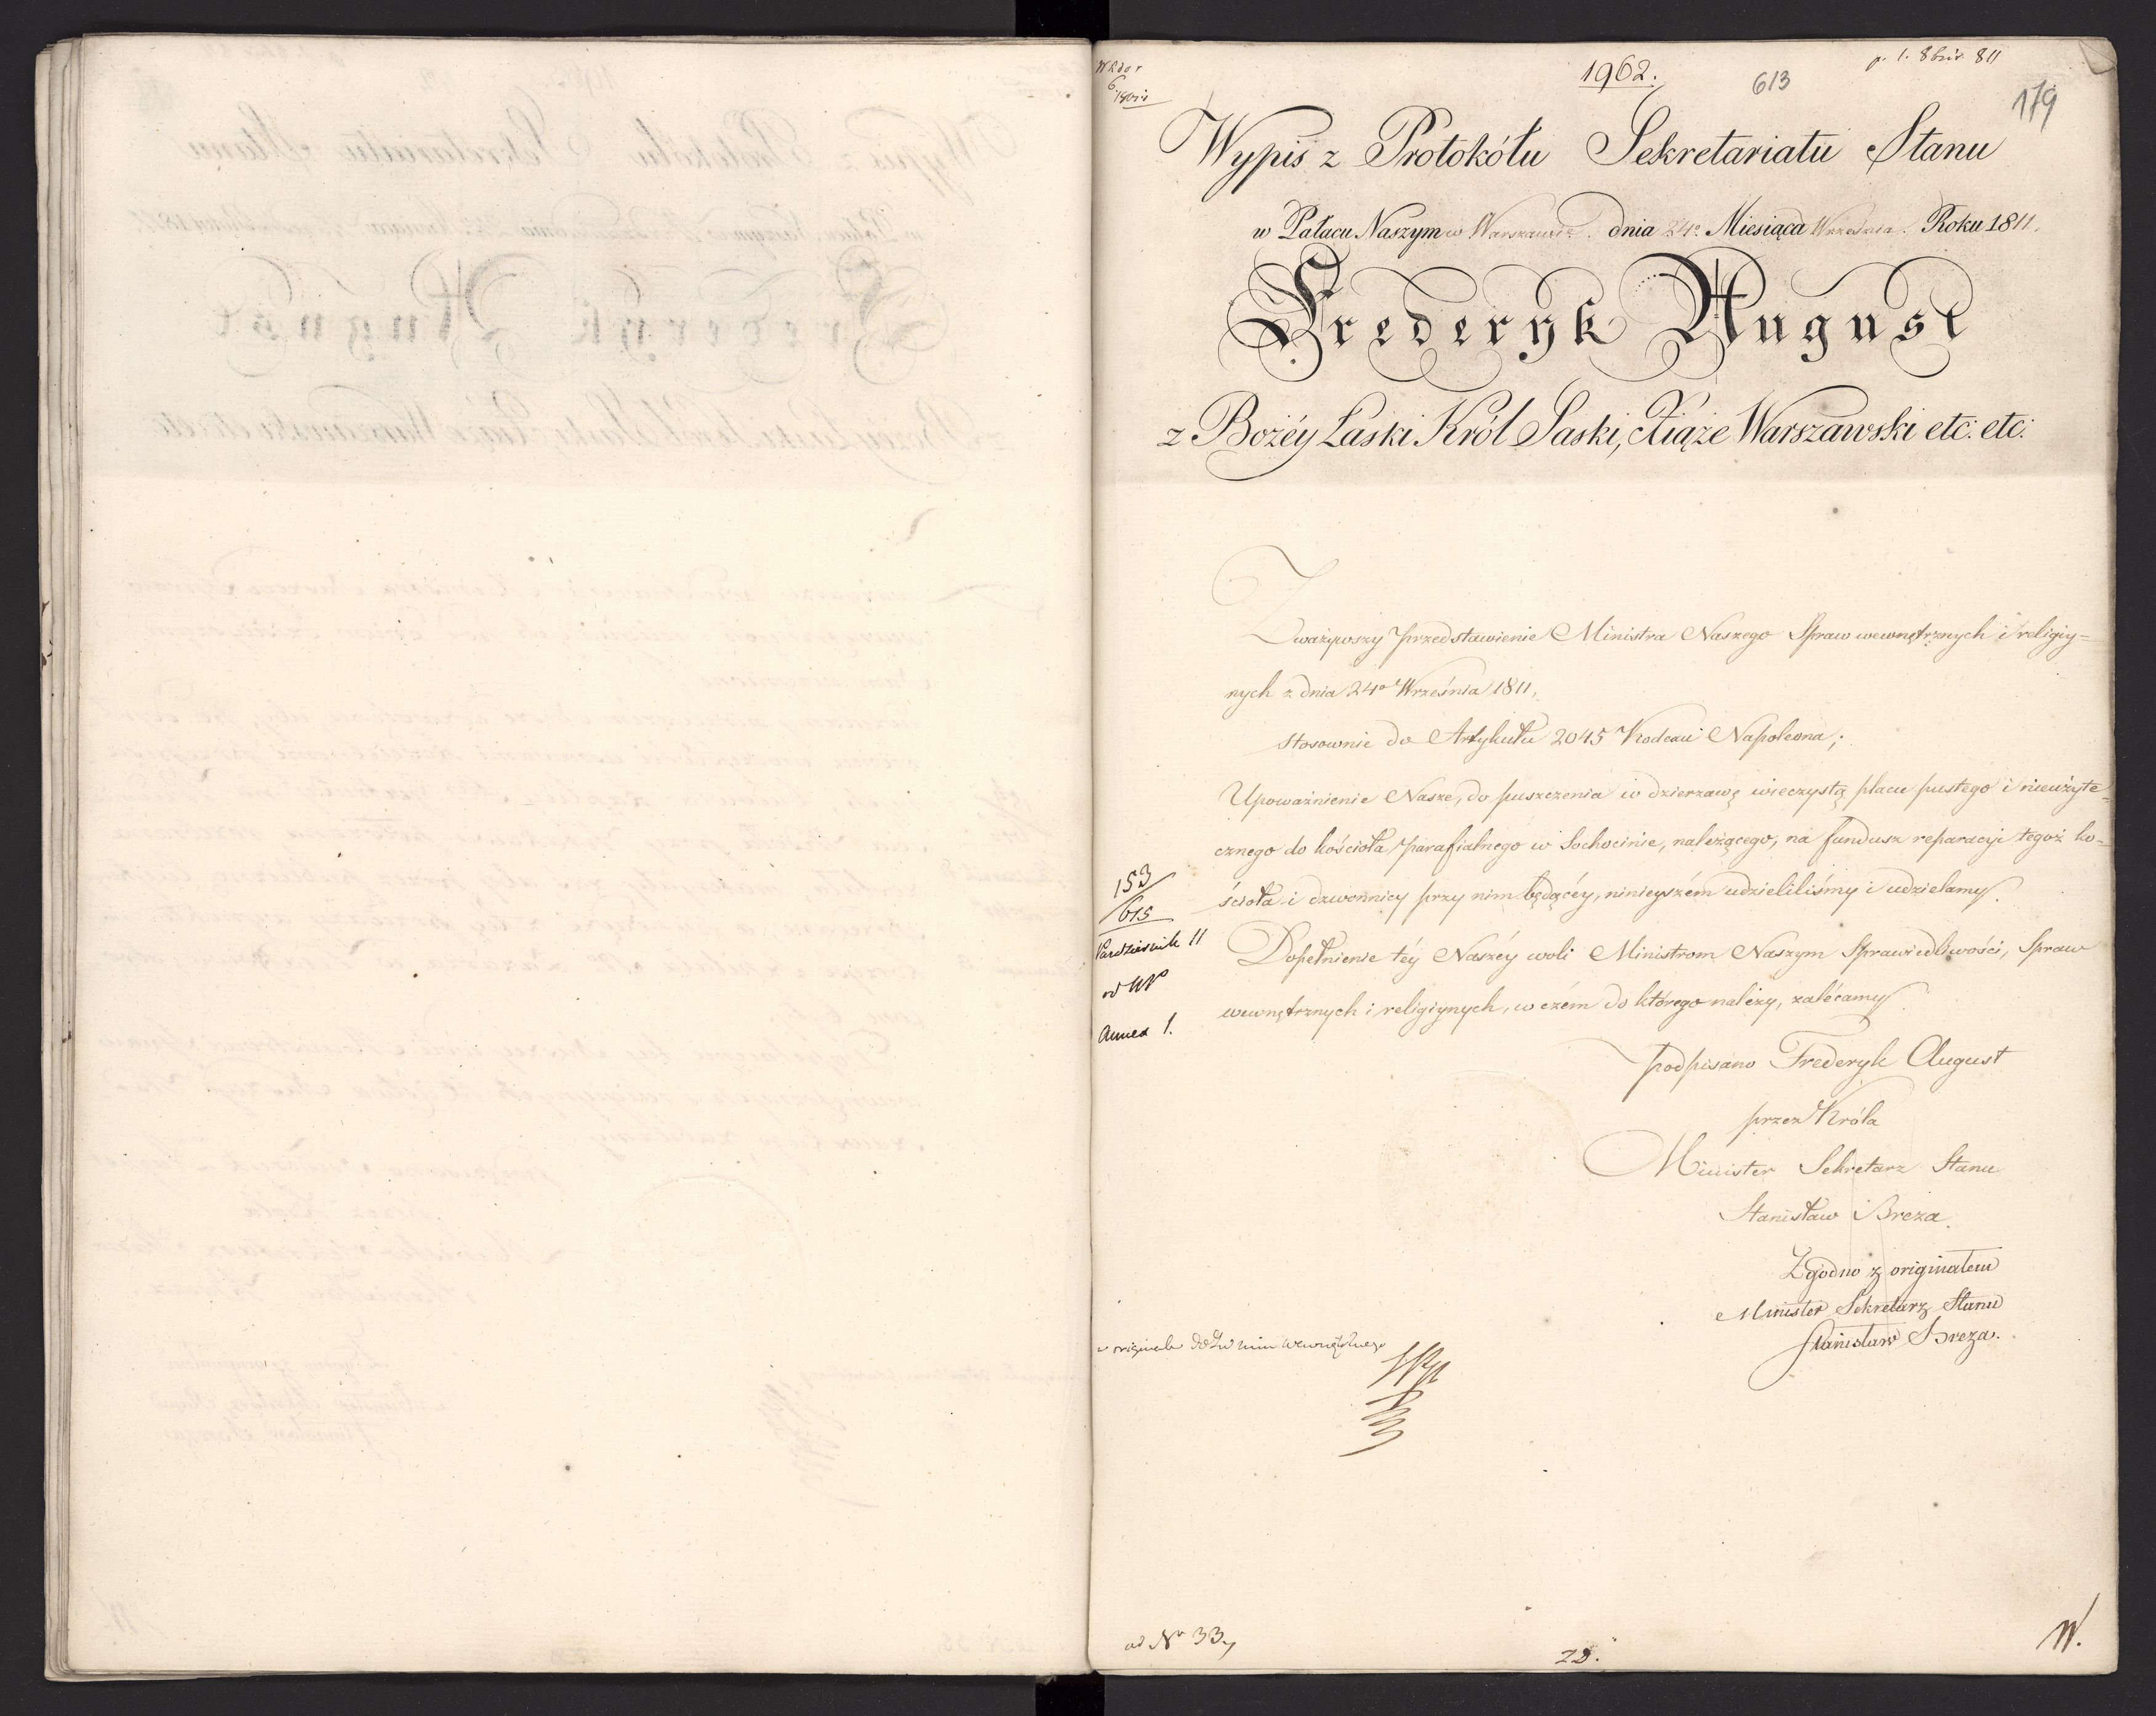 1962.
613
p. 1. 8bris 811
179
6
Wypis z Protokółu Sekretariatu Stanu
w Pałacu Naszym w Warszawie. dnia 24o Miesiąca Września. Roku 1811.
Frederyk August
z Bożéy Łaski Król Saski, Xiąże Warszawski etc: etc:
Zważywszy przedstawienie Ministra Naszego Spraw wewnętrznych i religiy=
nych z dnia 24o Września 1811,
stosownie do Artykułu 2045 Kodexu Napoleona;
Upoważnienie Nasze, do puszczenia w dzierzawę wieczystą placu pustego i nieużyte=
cznego do kościoła parafialnego w Sochocinie, należącego, na fundusz reparacyi tegoż ko=
ścioła i dzwonnicy przy nim będącéy, ninieyszém udzieliliśmy i udzielamy.
Dopełnienie téy Naszéy woli Ministrom Naszym Sprawiedliwości, Spraw
wewnętrznych i religiynych, w czém do którego należy, zalécamy
153
615
Pazdziernik 11
od
Annex 1.
podpisano Frederyk August
przez Króla
Minister Sekretarz Stanu
Stanisław Breza.
Zgodno z originałem
Minister Sekretarz Stanu
Stanisław Breza.
w originale
ad Nr 33.
28.
W.